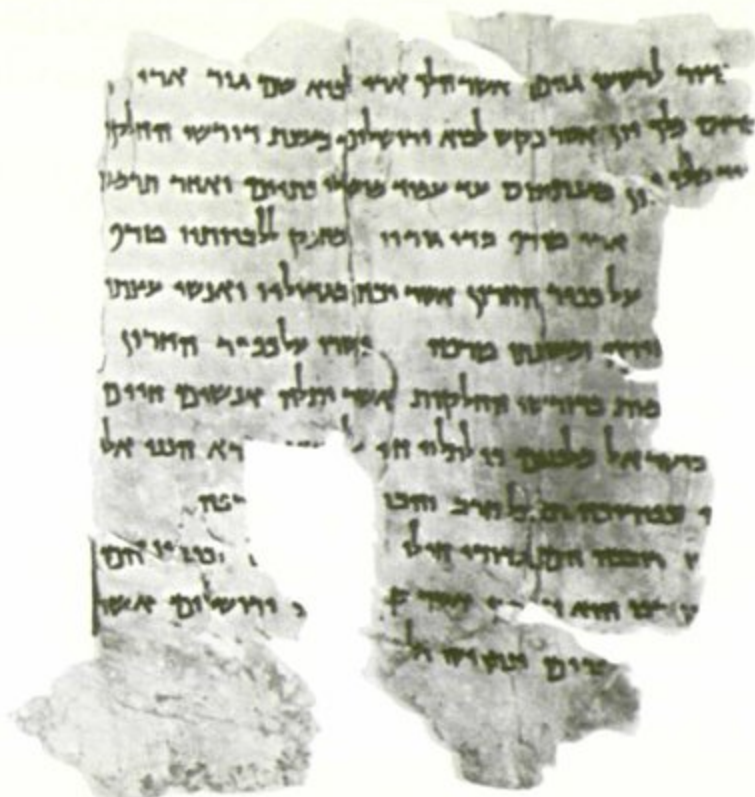 מדור לרשעי גוים אשר הלך ארי לבוא שם גור ארי
טרוס מלך יון אשר בקש לבוא ירושלים בעצת דורשי החלקות
יד מלכי יון מאנתיכוס עד עמוד מושלי כתיים ואחר תרמס
ארי טורף בדי גוריו מחנק ללביותיו טרף
על כפיר החרון אשר יכה בגדוליו ואנשי עצתו
ומעונתו טרפה פשרו על כפיר החרון
מות בדורשי החלקות אשר יתלה אנשים חיים
בישראל מלפנים כי לתלוי חי רא הנני אל
וכפיריכה תאכל חרב והכר רפה
רובכה הם גדודי חילו הם
הוא ירושלים אשר
רים ינתן